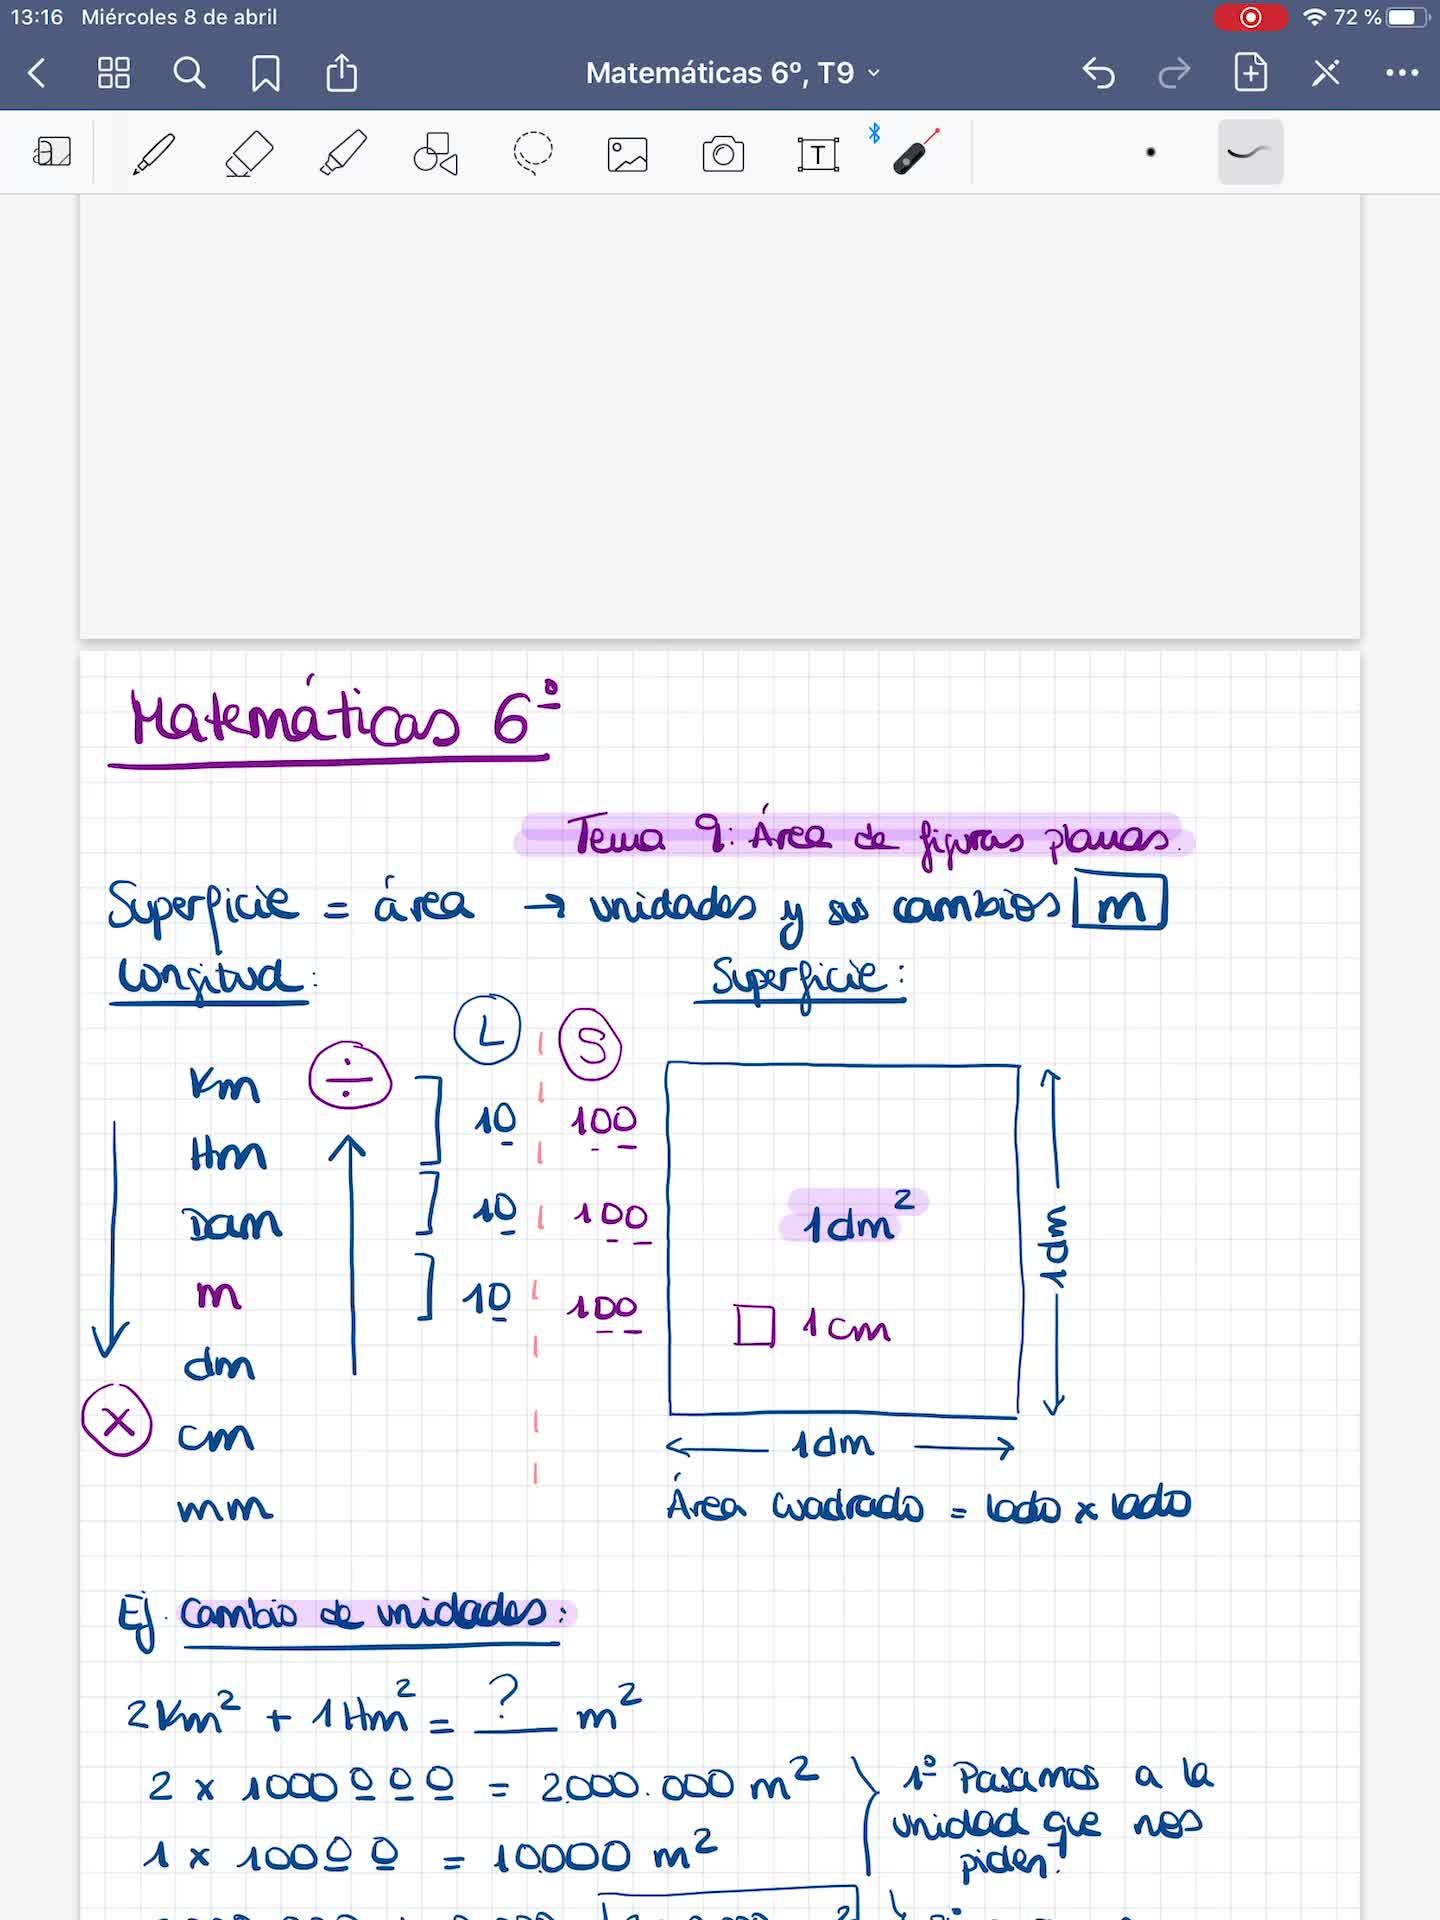 13:16 Miércoles 8 de abril 72 %
Matemáticas 6º, T9
T
Matemáticas 6º
Tema 9: Área de figuras planas.
Superficie = área → unidades y sus cambios m
Longitud: Superficie:
L S
Km ÷ 10 100
Hm
Dam 10 100 1dm² 1dm
m 10 100 1cm
dm
x cm 1dm
mm Área cuadrado = lado x lado
Ej. Cambio de unidades:
2Km² + 1Hm² = ? m²
2 x 1000000 = 2000.000 m² 1º Pasamos a la
1 x 10000 = 10000 m² unidad que nos
piden.